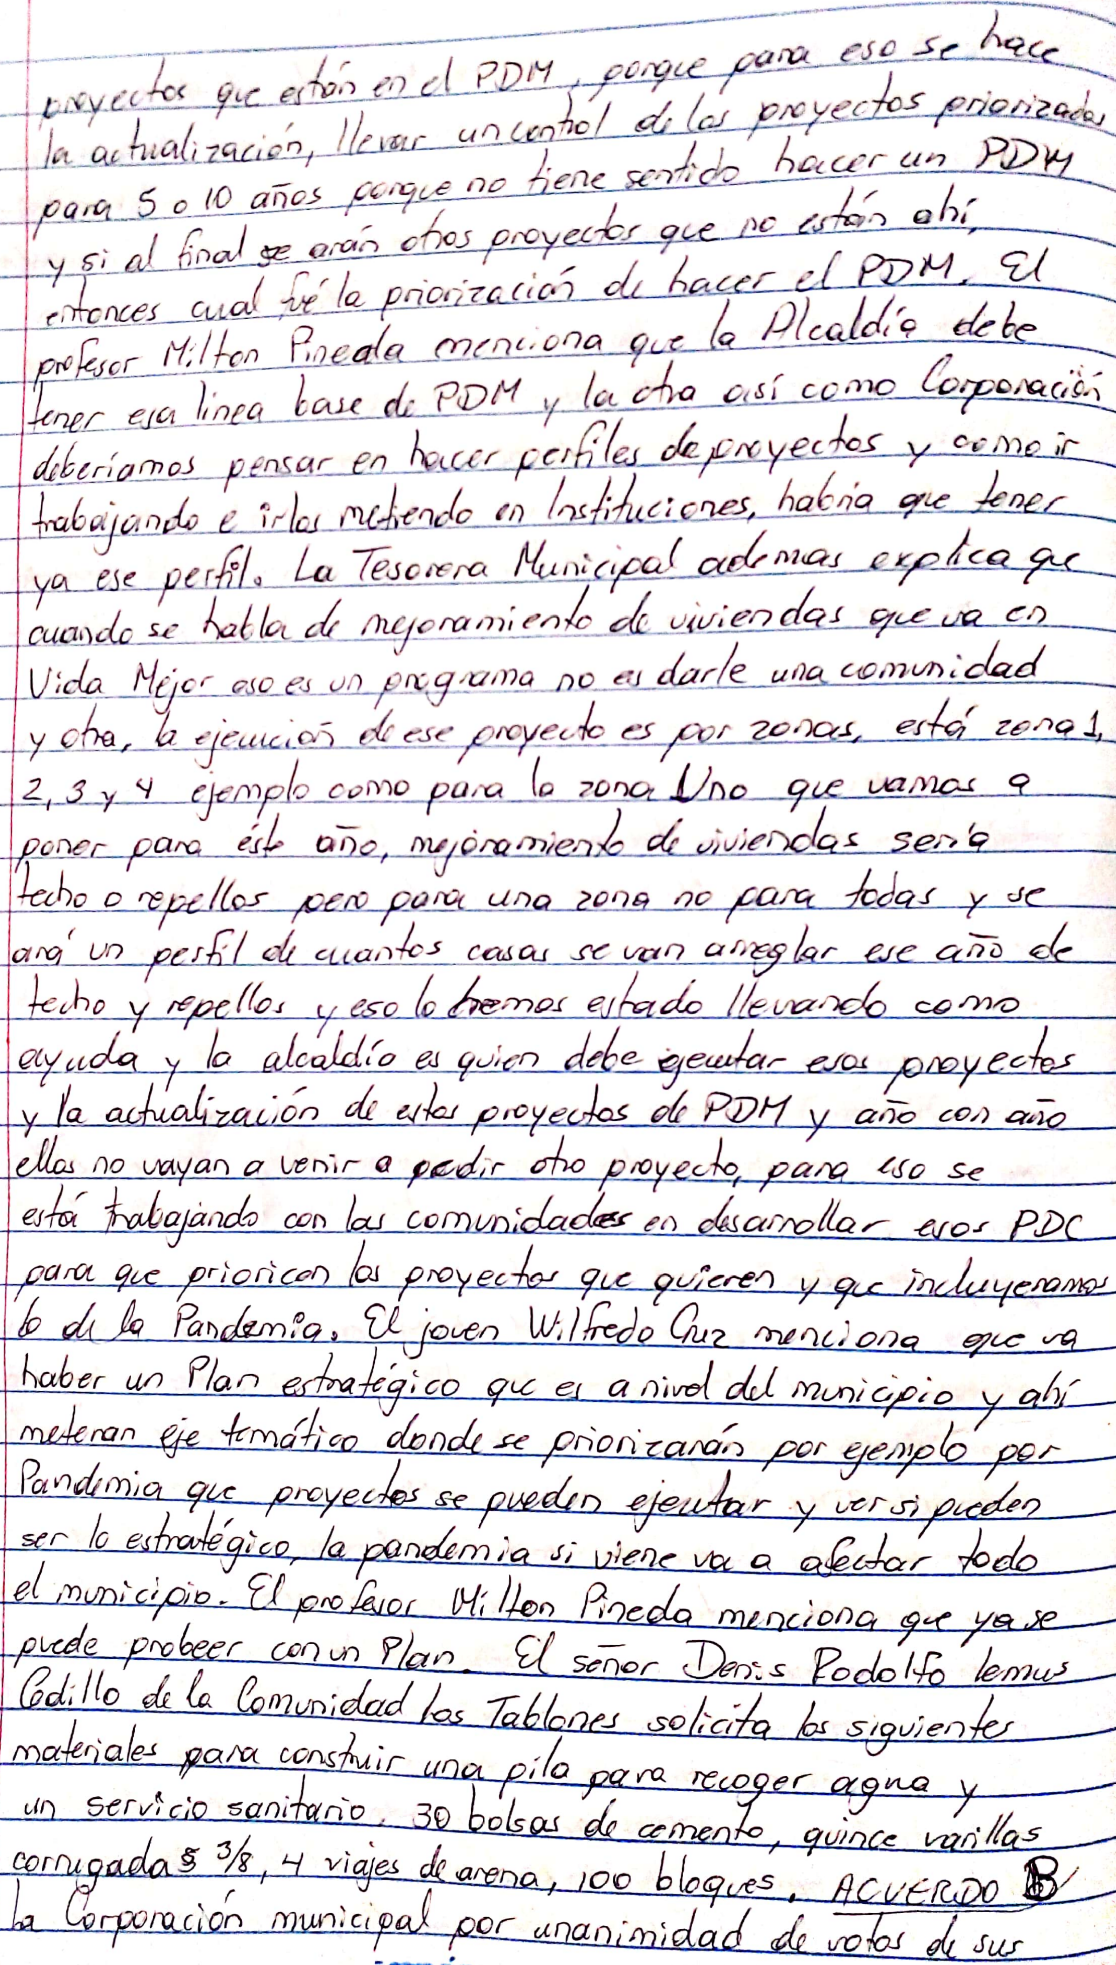 proyectos que están en el PDM, porque para eso se hace
la actualización, llevar un control de los proyectos priorizados
para 5 o 10 años porque no tiene sentido hacer un PDM
y si al final se arán otros proyectos que no están ahí,
entonces cual fué la priorización de hacer el PDM. El
profesor Milton Pineda menciona que la Alcaldía debe
tener esa linea base de PDM y la otra así como Corporación
deberíamos pensar en hacer perfiles de proyectos y como ir
trabajando e irlos metiendo en Instituciones, habría que tener
ya ese perfil. La Tesorera Municipal ademas explica que
cuando se habla de mejoramiento de viviendas que va en
Vida Mejor eso es un programa no es darle una comunidad
y otra, la ejecución de ese proyecto es por zonas, está zona 1,
2, 3 y 4 ejemplo como para la zona Uno que vamos a
poner para éste año, mejoramiento de viviendas sería
techo o repellos pero para una zona no para todas y se
ará un perfil de cuantos casas se van arreglar ese año de
techo y repellos y eso lo hemos estado llevando como
ayuda y la alcaldía es quien debe ejecutar esos proyectos
y la actualización de estos proyectos de PDM y año con año
ellos no vayan a venir a pedir otro proyecto, para eso se
está trabajando con las comunidades en desarrollar esos PDC
para que prioricen los proyectos que quieren y que incluyeramos
lo de la Pandemia. El joven Wilfredo Cruz menciona que va
haber un Plan estratégico que es a nivel del municipio y ahí
meteran eje temático donde se priorizarán por ejemplo por
Pandemia que proyectos se pueden ejecutar y ver si pueden
ser lo estratégico, la pandemia si viene va a afectar todo
el municipio. El profesor Milton Pineda menciona que ya se
puede probeer con un Plan. El señor Denis Rodolfo Lemus
Cedillo de la Comunidad los Tablones solicita los siguientes
materiales para construir una pila para recoger agua y
un servicio sanitario. 30 bolsas de cemento, quince varillas
corrugadas 3/8, 4 viajes de arena, 100 bloques. ACUERDO B
la Corporación municipal por unanimidad de votos de sus